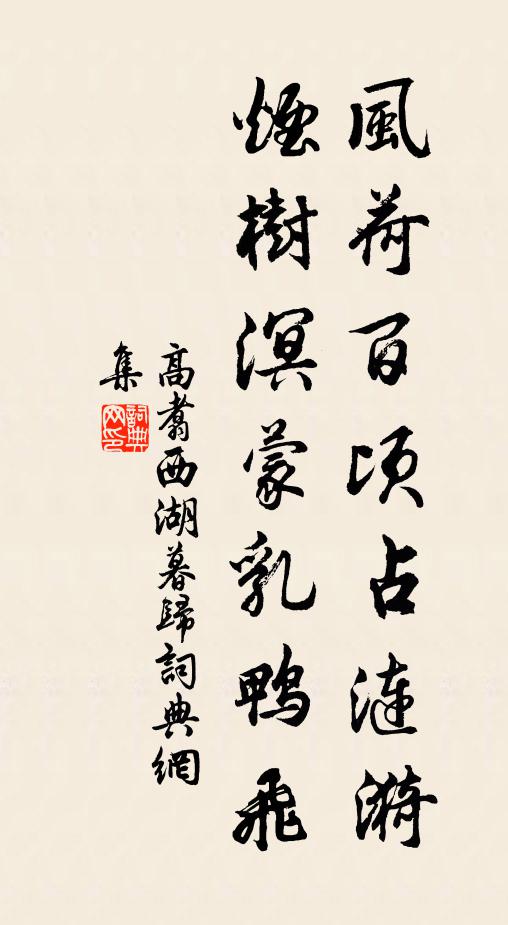 風荷百頃占漣漪
煙樹溟蒙乳鴨飛
高翥西湖暮歸詞典網
集
詞典
网印